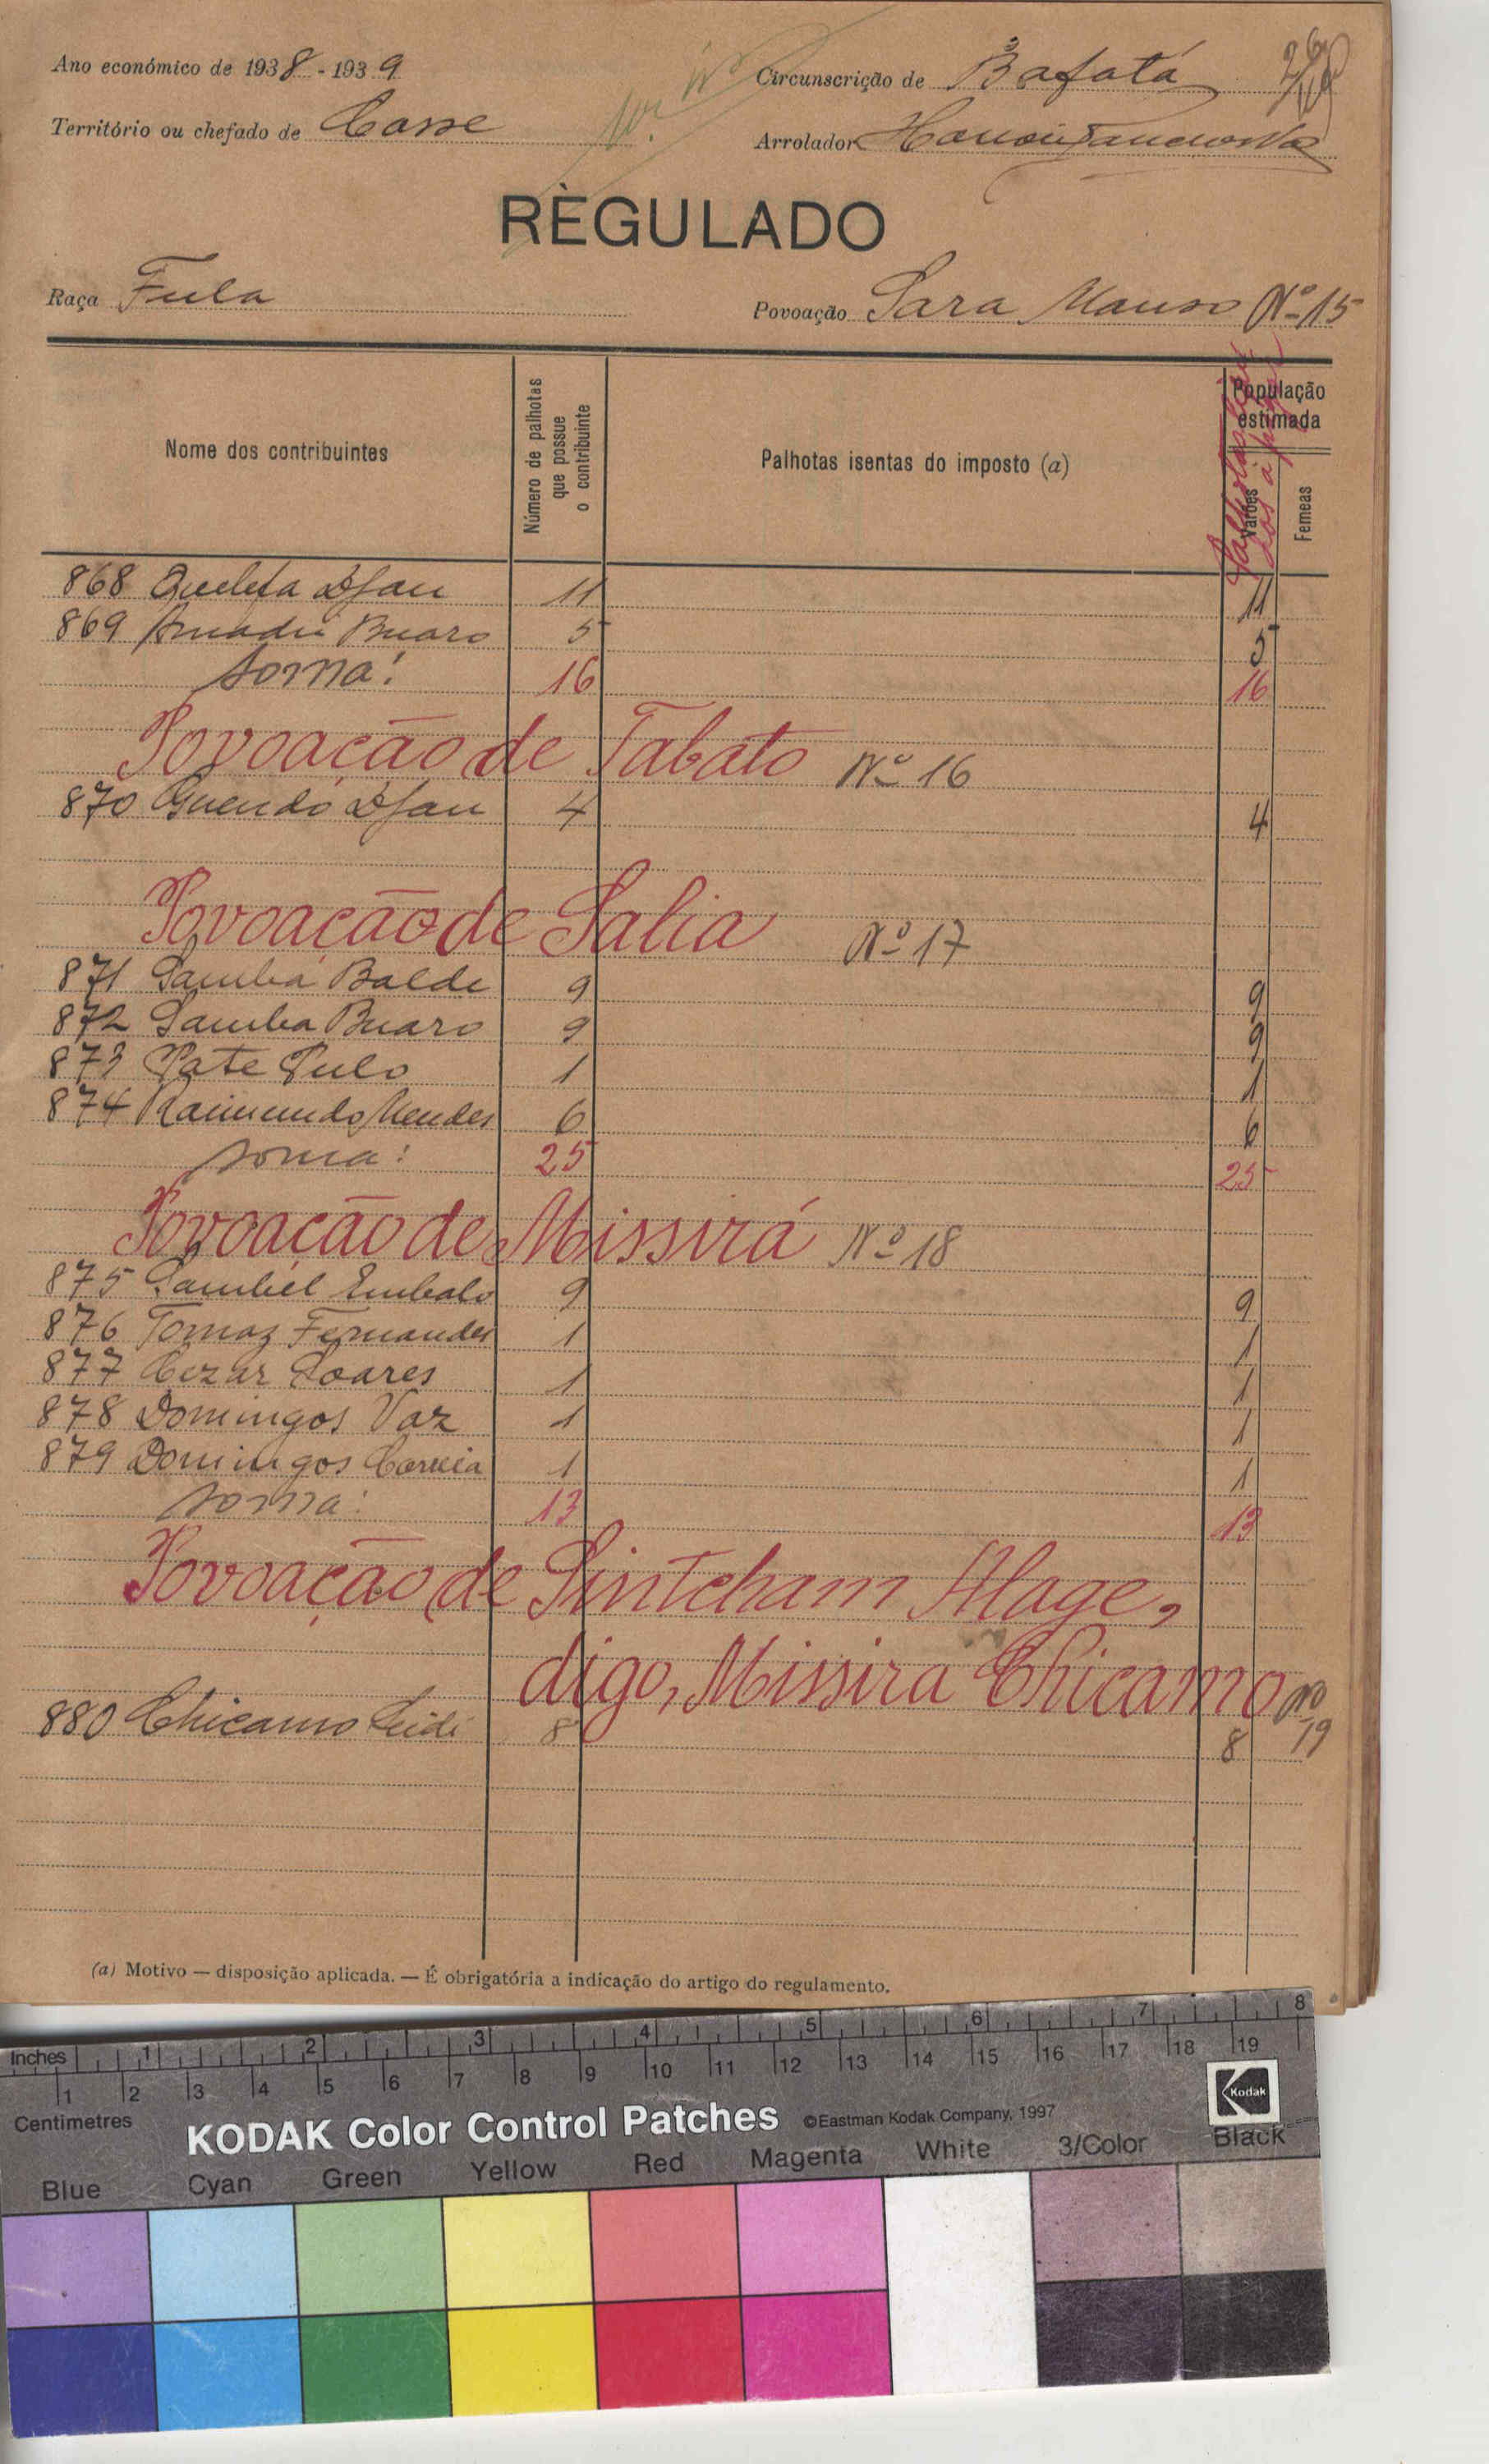 Ano económico de 1938-1939
Circunscrição de Bafatá
Território ou chefado de Cosse
Arrolador
RÈGULADO
Raça Fula
Povoação Sara Manso Nº 15
Nome dos contribuintes
Número de palhotas que possue o contribuinte
Palhotas isentas do imposto (a)
População estimada
Varões
Femeas
868 Queleta Djau 11 11
869 Amadú Buaro 5 5
Soma: 16 16
Povoação de Tabato Nº 16
870 Guendo Djau 4 4
Povoação de Salia Nº 17
871 Samba Balde 9 9
872 Samba Buaro 9 9
873 Pate Pulo 1 1
874 Raimundo Mendes 6 6
Soma: 25 25
Povoação de Missirá Nº 18
875 Sambel Embalo 9 9
876 Tomaz Fernandes 1 1
877 Cezar Soares 1 1
878 Domingos Vaz 1 1
879 Domingos Correia 1 1
Soma: 13 13
Povoação de Sintcham Alage,
digo, Missira Chicamo Nº 19
880 Chicamo Seidi 8 8
(a) Motivo — disposição aplicada. — É obrigatória a indicação do artigo do regulamento.
Inches 1 2 3 4 5 6 7 8
1 2 3 4 5 6 7 8 9 10 11 12 13 14 15 16 17 18 19
Centimetres
KODAK Color Control Patches ©Eastman Kodak Company, 1997
Kodak
Blue Cyan Green Yellow Red Magenta White 3/Color Black